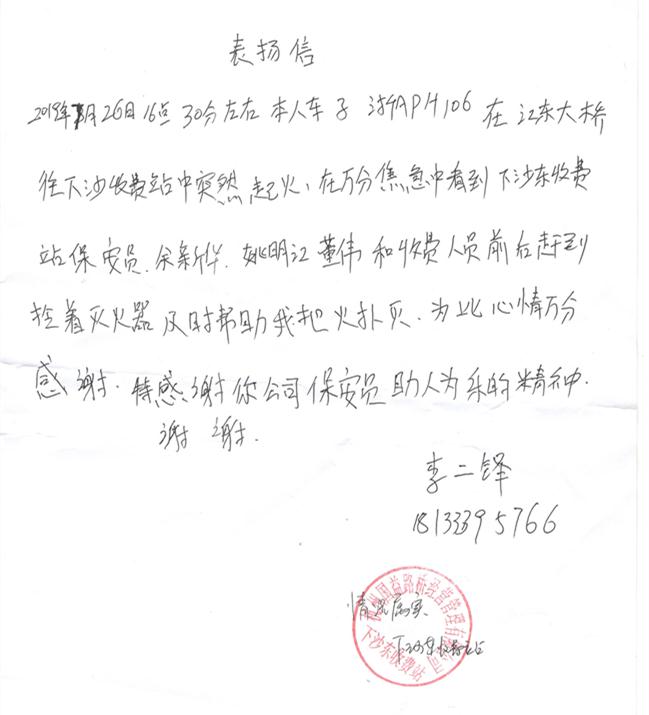 表扬信
2019年1月26日16点30分左右 本人车子 浙APH106 在 江东大桥
往下沙收费站中突然起火、在万分焦急中看到下沙东收费
站保安员、余新华、姚明江 董伟 和收费人员前后赶到
拎着灭火器及时帮助我把火扑灭、为此心情万分
感谢. 特感谢你公司保安员助人为乐的精神.
谢谢.
李二铎
18133395766
情况属实
下沙东收费站
国益路桥经营管理有限公司
下沙东收费站